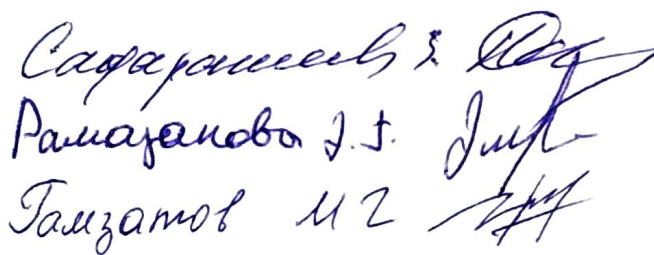 Сафаралиев З.
Рамазанова Э.Г.
Гамзатов М Г